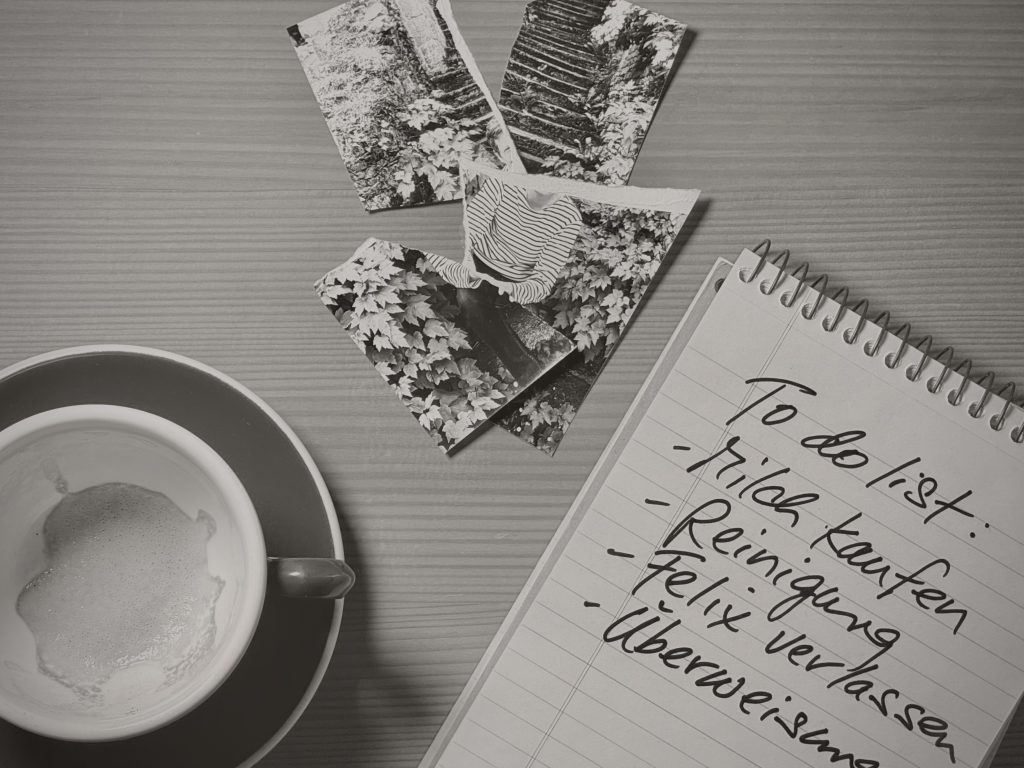 To do list:
- Milch kaufen
- Reinigung
- Felix verlassen
- Überweisung